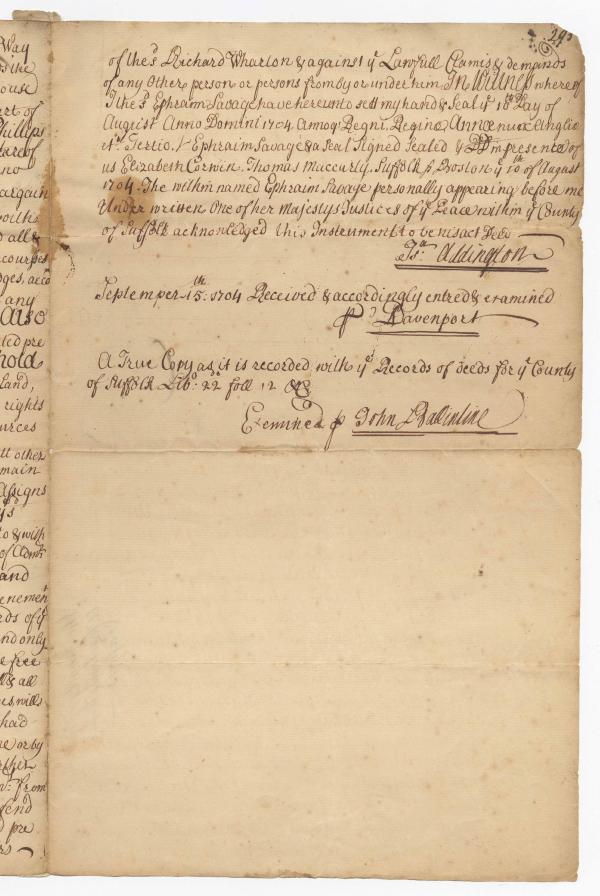 Way
the
ouse
rt of
Phillips
tare of
no
argain
d all &
courses
dges, acco
any
Also
ted pre
hold
Land,
rights
ources
all other
main
Assigns
to & with
of Adm.rs
and
enement
rds of y.e
nd only
e free
ll & all
us wills
had
ne or by
from
fend
d pre
rs
of the s.d Richard Wharton & against y.e Lawfull Claims & demands
of any Other person or persons from by or under him. In Witness whereof
I the s.d Ephraim Savage have hereunto sett my hand & Seal y.e 18th Day of
August Anno Domini 1704 Annoq Regni Reginæ Annæ nunc Angliæ
&c.a Tertio. Ephraim Savage & a Seal Signed Sealed & DD in presence of
us Elizabeth Corwin. Thomas Maccurly. Suffolk ss Boston y.e 10th of August
1704. The within named Ephraim Savage personally appearing before me
Under written One of her Majestys Justices of y.e Peace within y.e County
of Suffolk acknowledged this Instrument to be his act & Deed
Is.a Addington
September 15.th 1704 Received & accordingly entred & examined
p A Davenport
A True Copy as it is recorded with y.e Records of deeds for y.e County
of Suffolk Lib.o 22 foll 12 &c
Exmined p John Ballintine